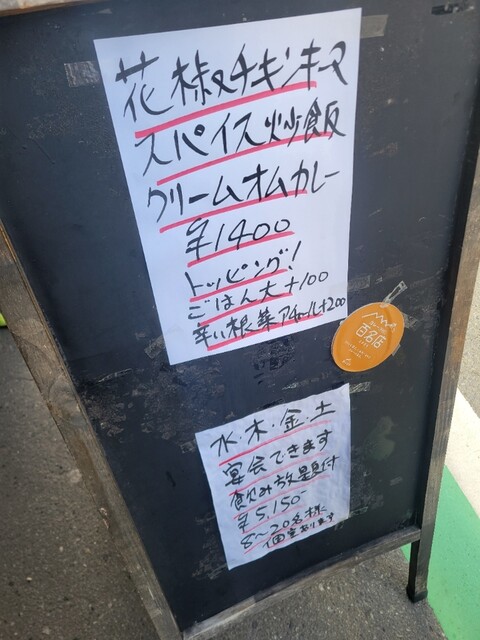 花椒チキンキーマ
スパイス炒飯
クリームオムカレー
¥1400
トッピング!
ごはん大+100
辛い根菜アチャール+200
百名店
水・木・金・土
宴会できます
飲み放題付
¥5,150-
8〜20名様
個室あります